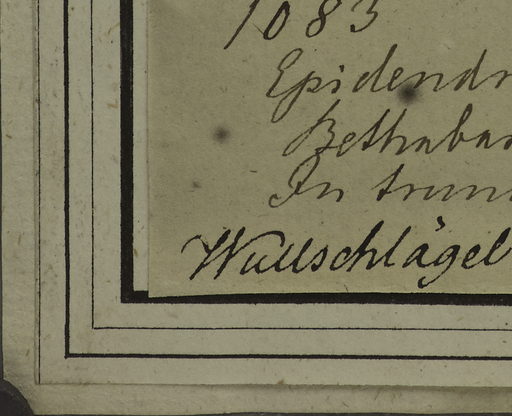 1083
Epidendr
Bethabar
In trun
Wullschlägel